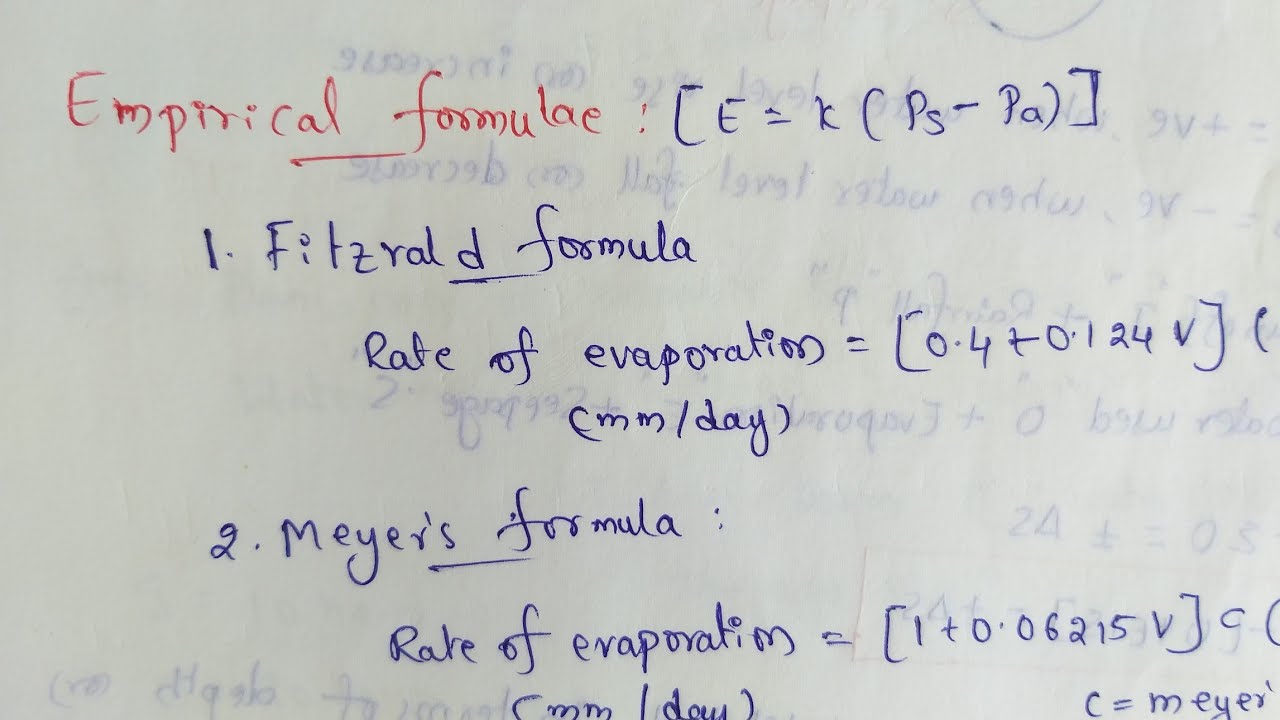 Empirical formulae : [E = K (Ps - Pa)]
1. Fitzrald formula
Rate of evaporation = [0.4 + 0.124 V] (
(mm/day)
2. Meyer's formula :
Rate of evaporation = [1 + 0.06215 V] C (
(mm/day)
C = meyer'